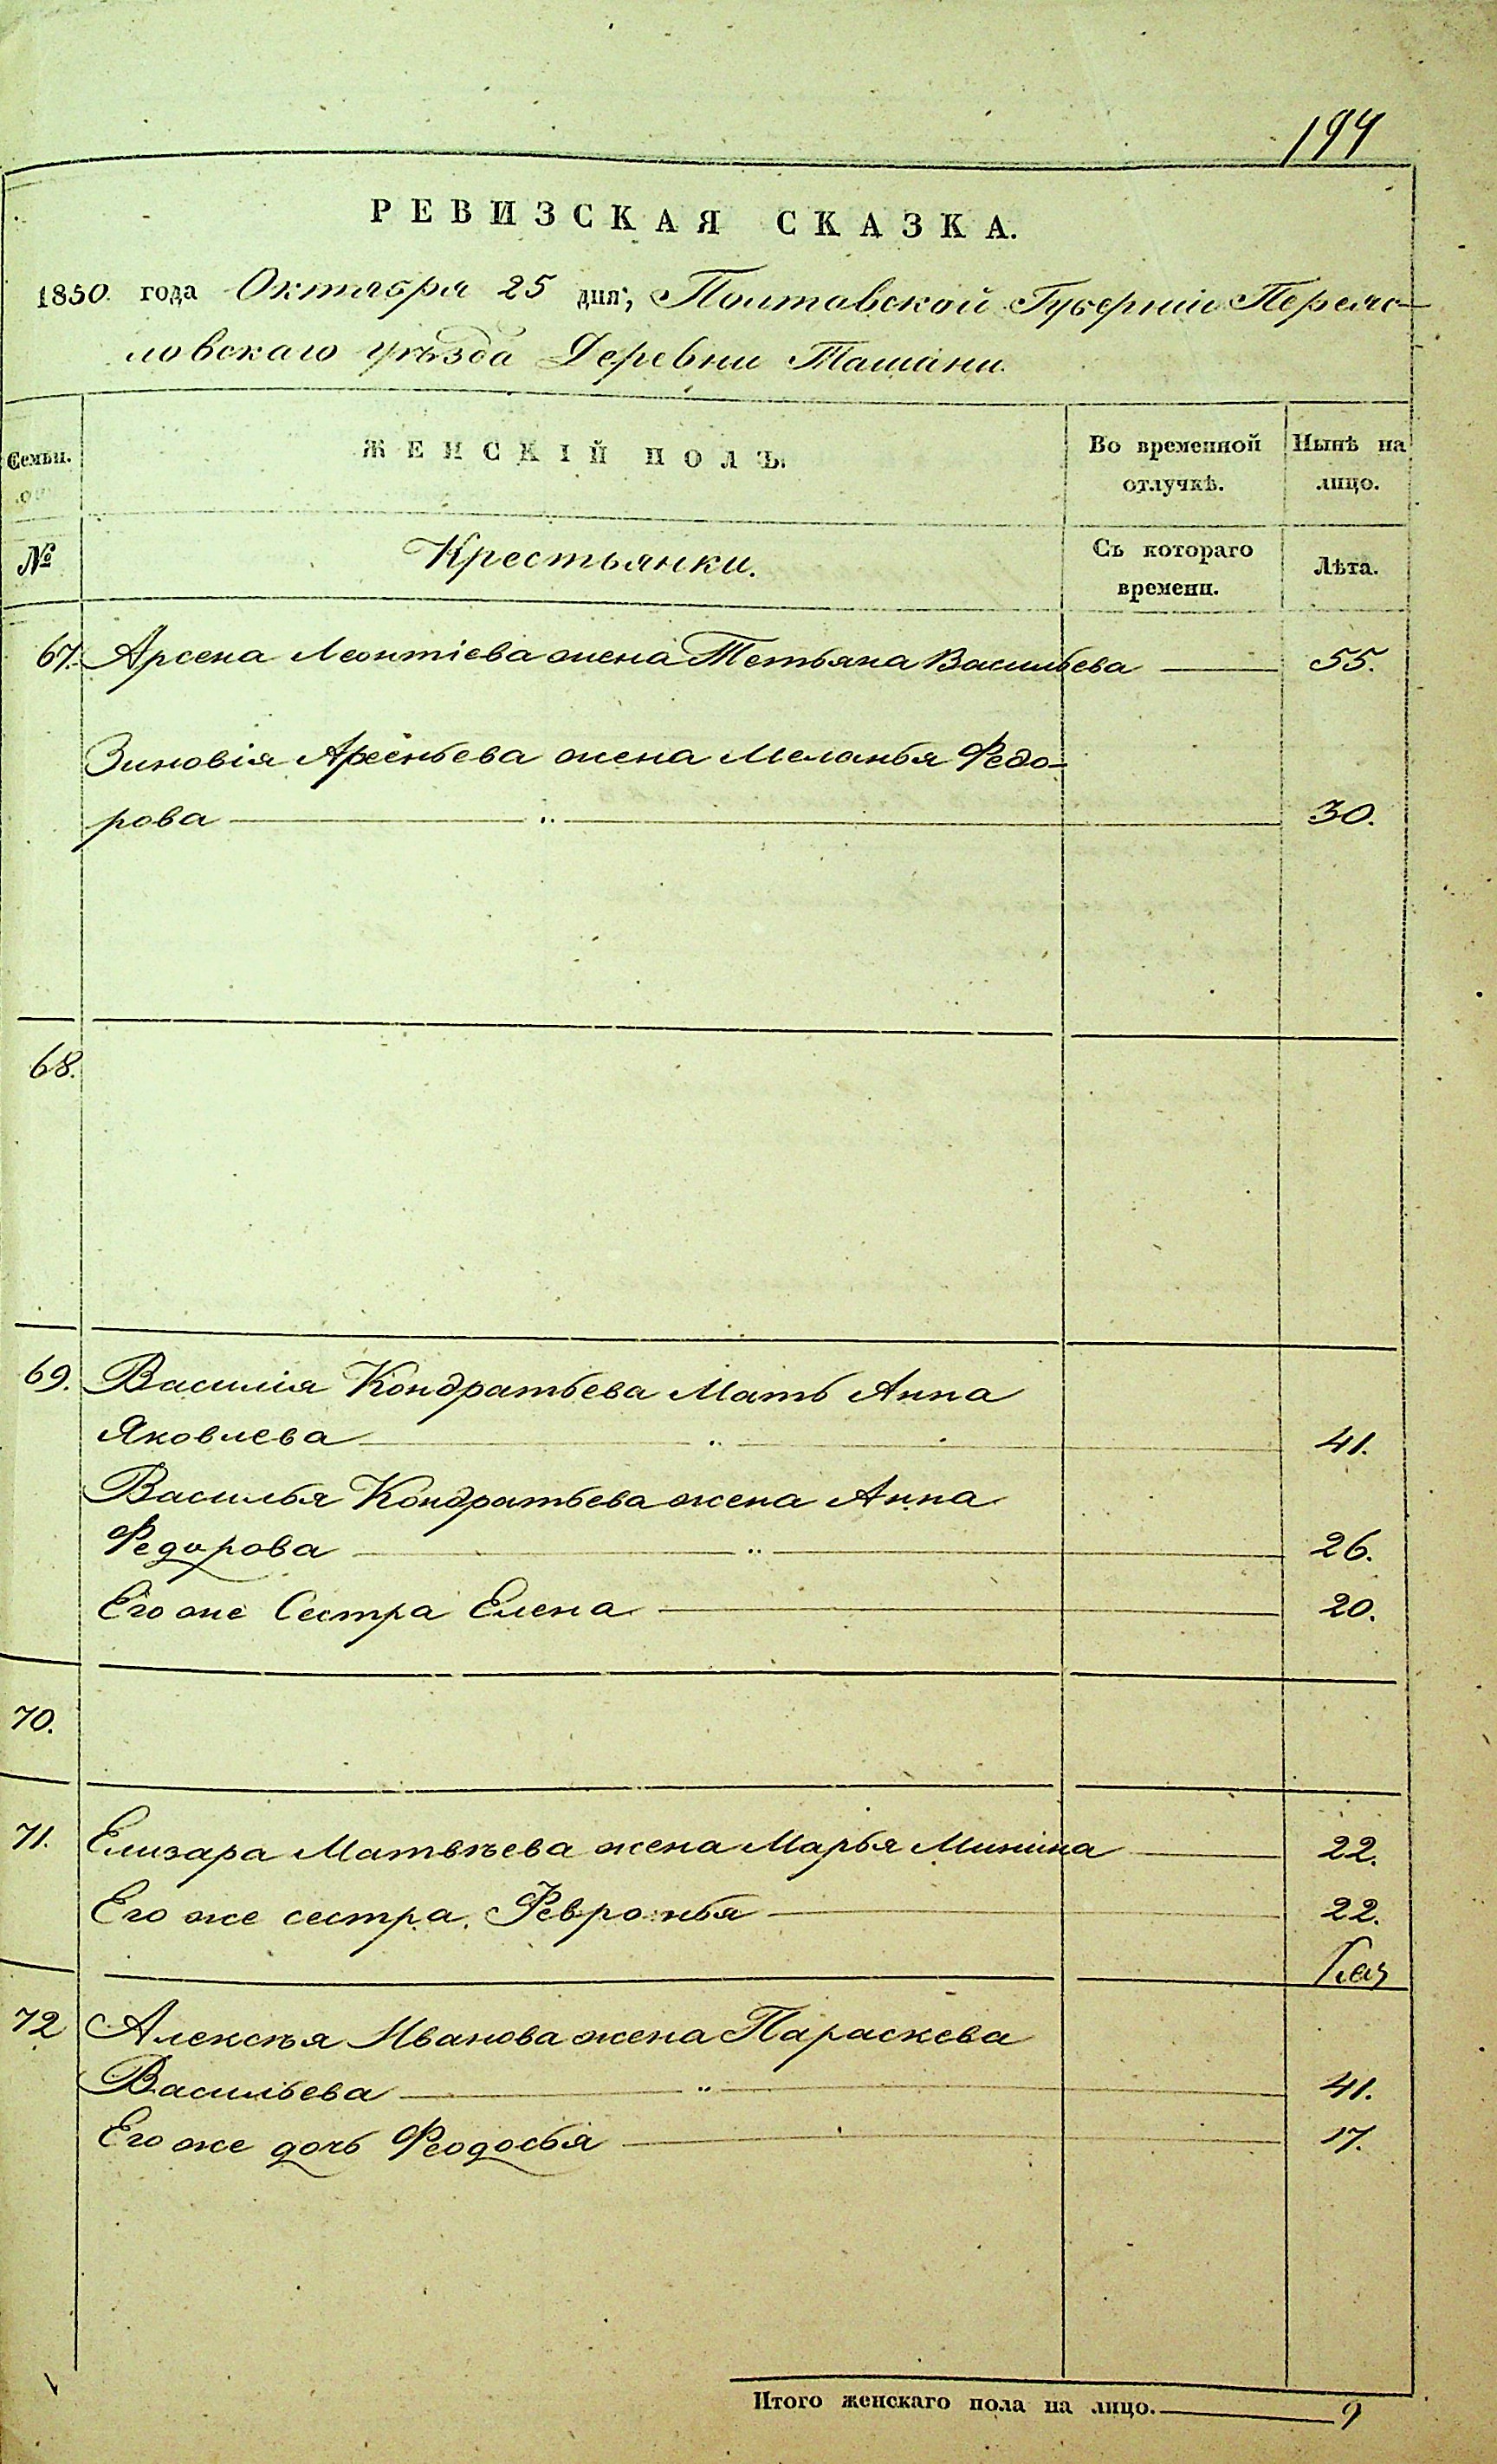 194
РЕВИЗСКАЯ СКАЗКА.
1850. года Октября 25 дня, Полтавской Губерніи Переяс-
ловскаго уѣзда Деревни Ташани.
Семьи.
ЖЕНСКІЙ ПОЛЪ.
Во временной отлучкѣ.
Нынѣ на лицо.
№
Крестьянки.
Съ котораго времени.
Лѣта.
67. Арсена Леонтіева жена Тетьяна Васильева 55.
Зиновія Арсеньева жена Меланья Федо-
рова 30.
68.
69. Василія Кондратьева Мать Анна
Яковлева 41.
Василья Кондратьева жена Анна
Федорова 26.
Его же Сестра Елена 20.
70.
71. Елизара Матвѣева жена Марья Минина 22.
Его же сестра Февронья 22.
72 Алексѣя Иванова жена Параскева
Васильева 41.
Его же дочь Феодосья 17.
Итого женскаго пола на лицо. 9